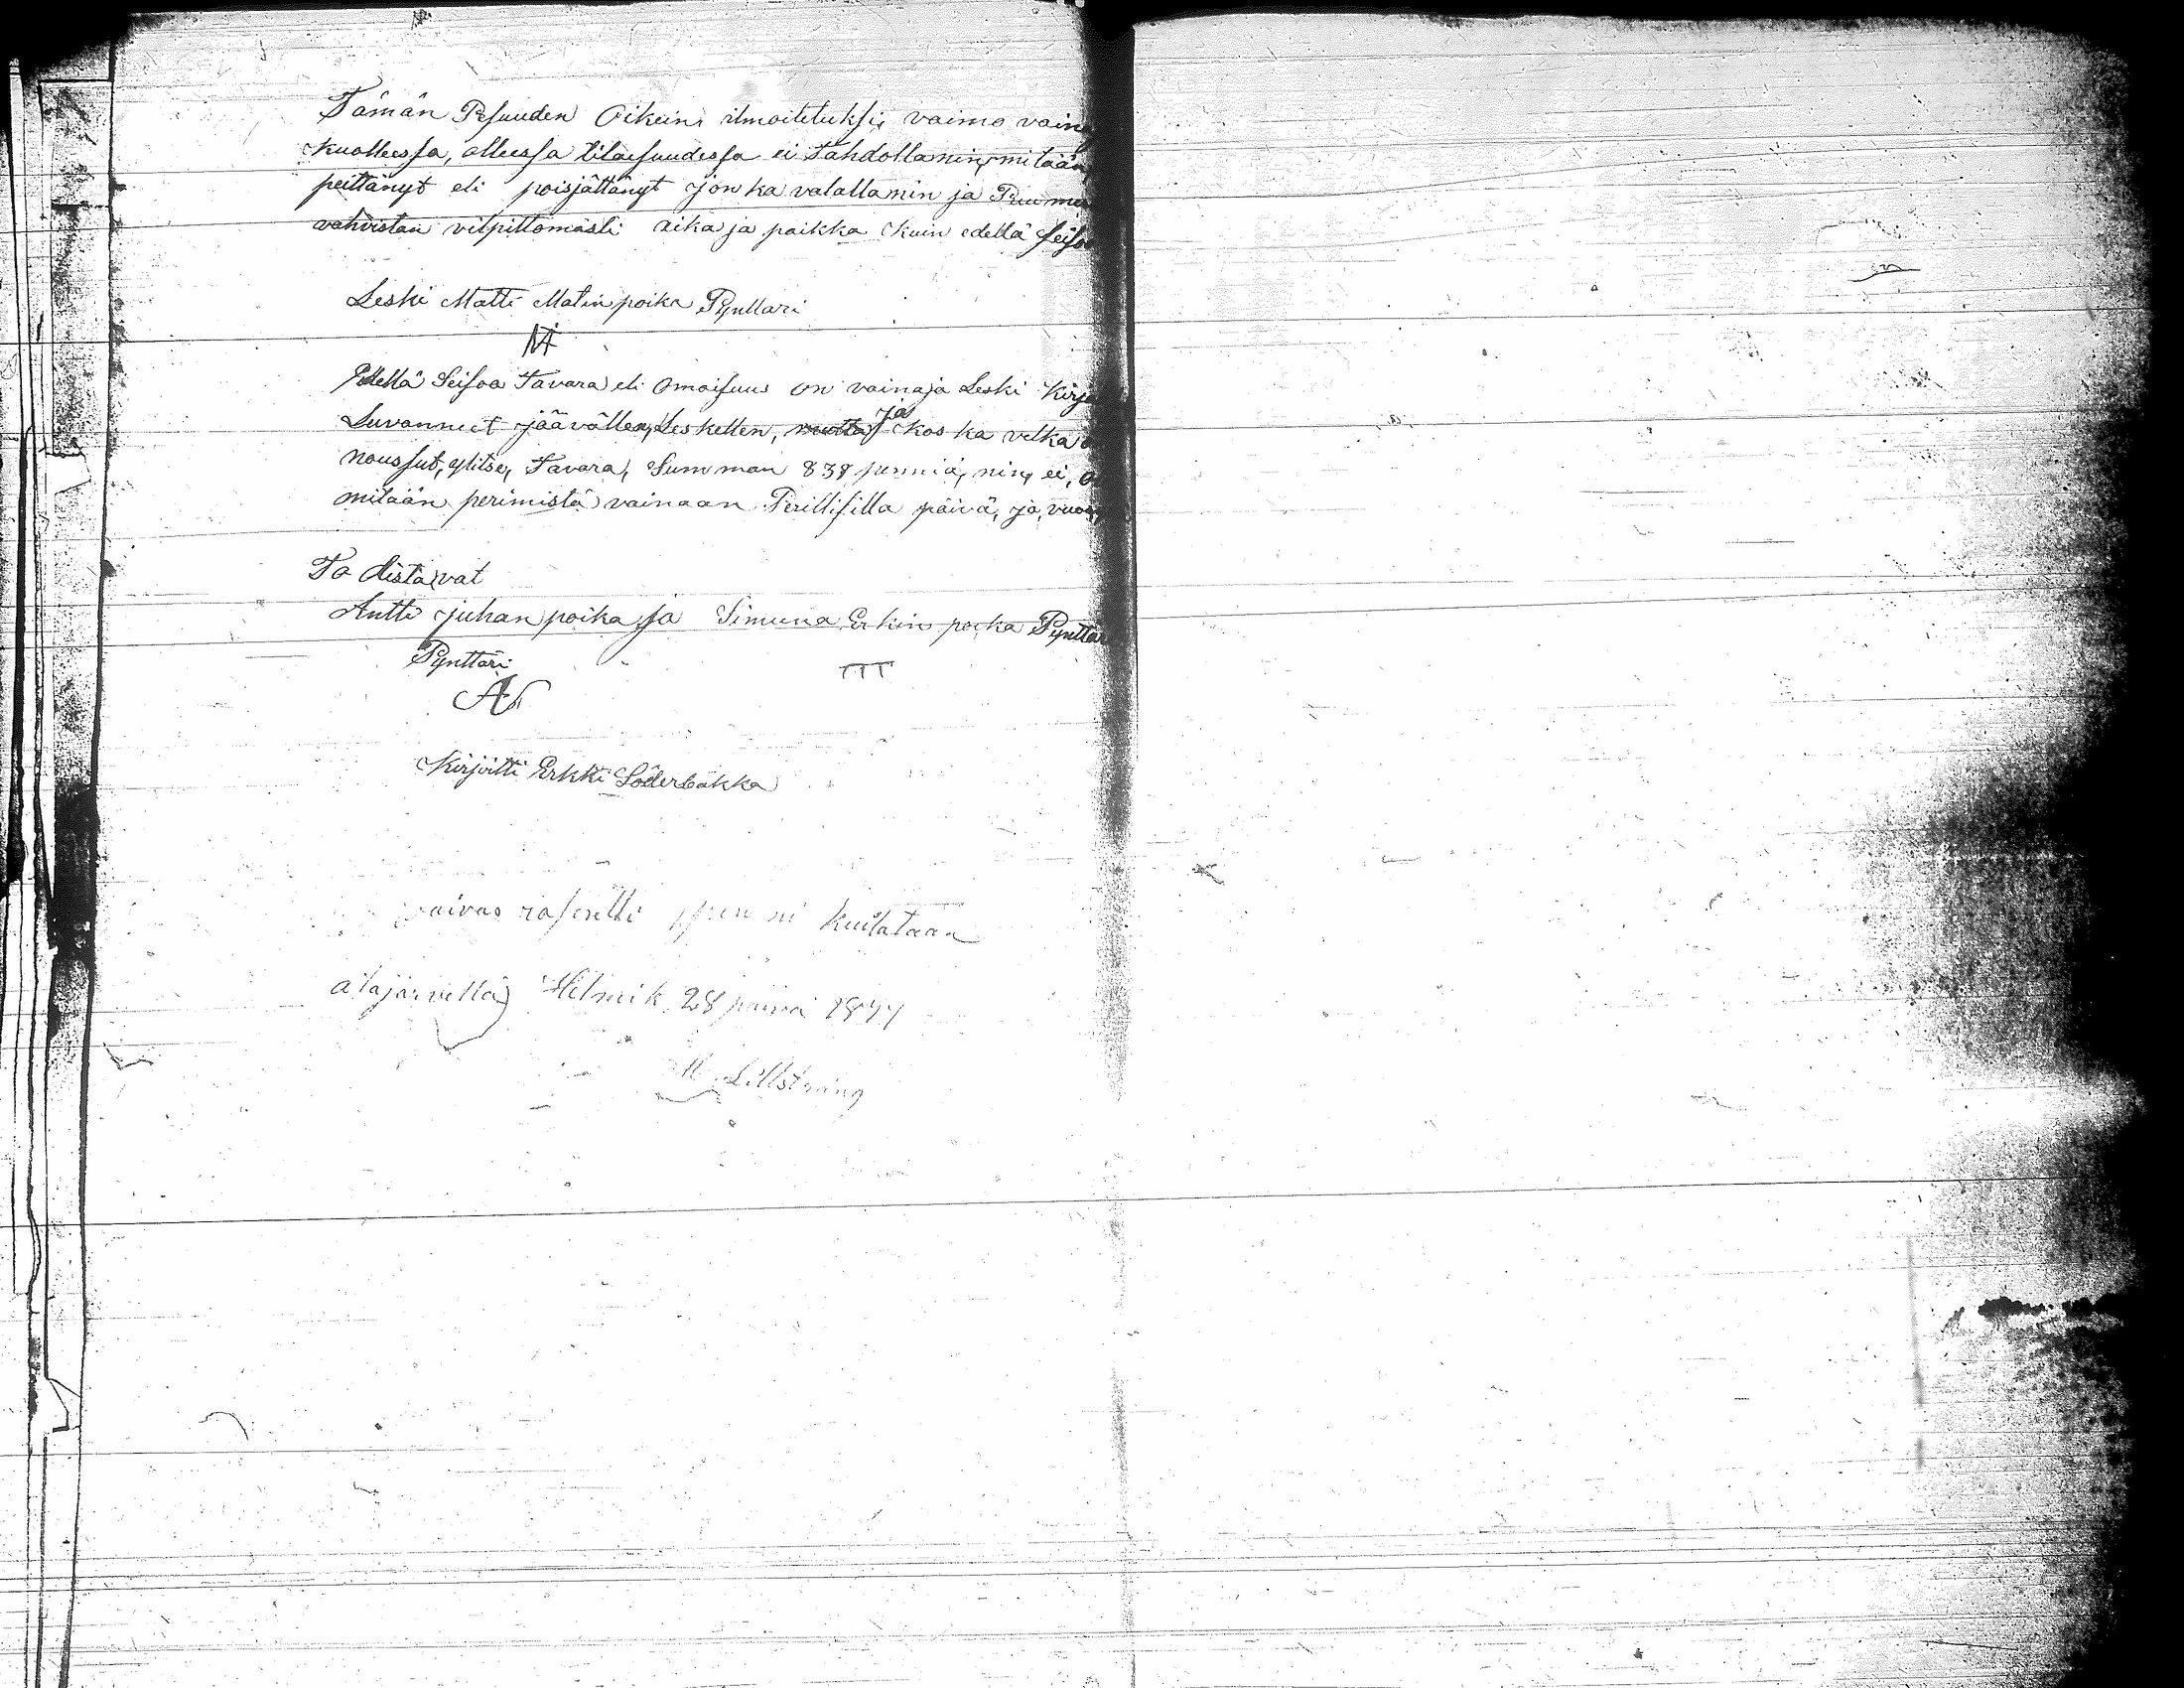 Tämän Pesuuden Oikein ilmoitetuksi, vaimo vain
Kuolleessa, olleessa tilaisuudessa ei Tahdollanin, mitään,
peittänyt eli poisjättänyt jonka valallanin ja Ruumi
vahvistan vilpittömästi aika ja paikka Kuin edellä seiso
Leski Matti Matin poika Pynttari
M
Edellä Seisoa Tavara eli Omaisuus on vainaja Leski Kirja
Luvannut jäävällen, Leskellen, mutta ja Kos ka velka
noussut, ylitse, Tavara, Summan 838 penniä, nin, ei,
mitään perimistä vainaan Perillisilla päivä, ja, vuos
To distavat
Antti Juhan poika ja Simuna Erkin poika Pynttar
Pynttäri
A
Kirjoitti Erkki Söderbakka
penni Kuitataan
alajärvellä Helmik. 28 päivä 1877
M. Lillstrång